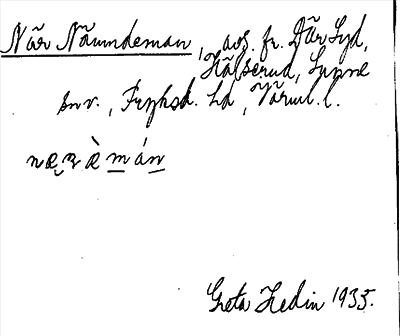 När Näumdeman, avs. fr. Där Syd,
Hälserud, Sunne
snv., Fryksd. hd, Värml. l.
næ̬ræ̀mán
Greta Hedin 1935.